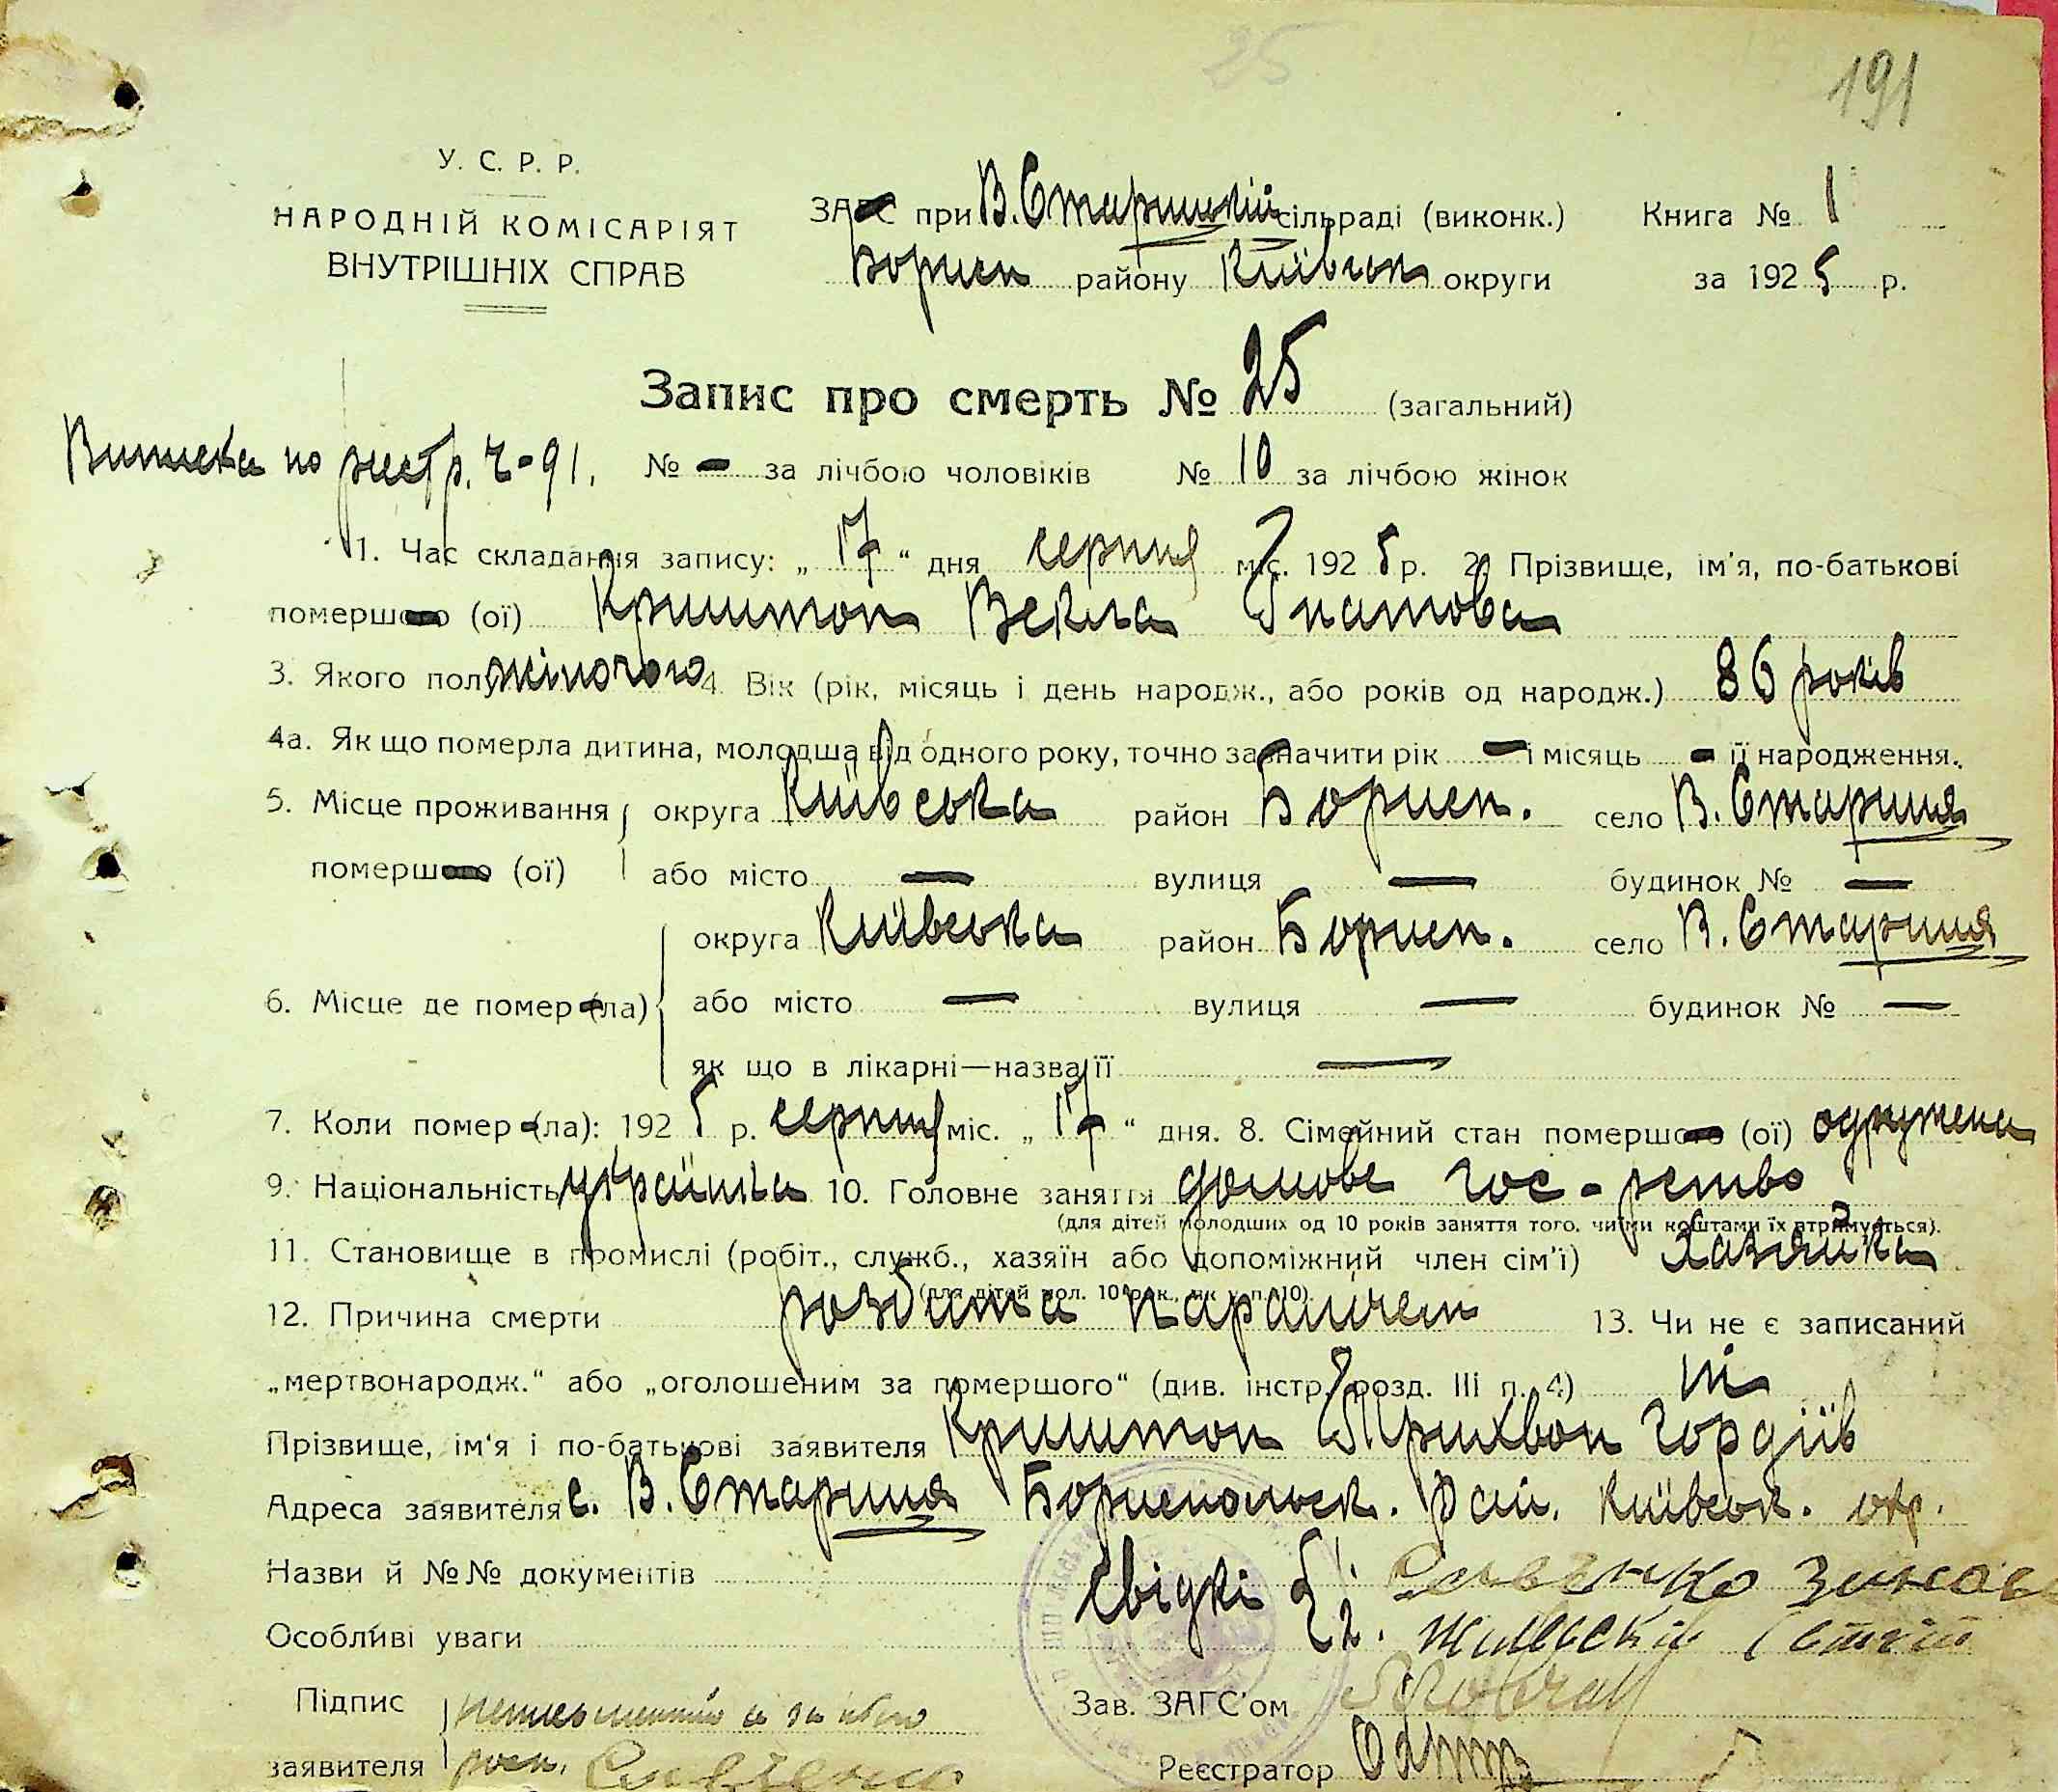 25
191
У. С. Р. Р.
НАРОДНІЙ КОМІСАРІЯТ
ВНУТРІШНІХ СПРАВ
ЗАГС при В. Старицькій сільраді (виконк.)
Книга № 1
Борисп району Київськ округи
за 1925 р.
Запис про смерть № 25 (загальний)
Виписка по реєстр. Ч-91. № — за лічбою чоловіків № 10 за лічбою жінок
1. Час складання запису: „17“ дня серпня міс. 1925 р. 2. Прізвище, ім'я, по-батькові
помершого (ої) Криштоп Векла Гнатова
3. Якого полу жіночого 4. Вік (рік, місяць і день народж., або років од народж.) 86 років
4а. Як що померла дитина, молодша від одного року, точно зазначити рік — і місяць — її народження.
5. Місце проживання округа Київська район Борисп. село В. Стариця
помершого (ої) або місто — вулиця — будинок № —
округа Київська район Борисп. село В. Стариця
6. Місце де помер (ла) або місто — вулиця — будинок № —
як що в лікарні—назва її —
7. Коли помер (ла): 1925 р. серпня міс. „17“ дня. 8. Сімейний стан помершого (ої) одружена
9. Національність українка 10. Головне заняття домове гос-рство
(для дітей молодших од 10 років заняття того, чиїми коштами їх втримується).
11. Становище в промислі (робіт., служб., хазяїн або допоміжний член сім'ї) хазяйка
(для дітей мол. 10 рок., як у п. 10).
12. Причина смерти розбита параличем 13. Чи не є записаний
„мертвонародж.“ або „оголошеним за помершого“ (див. інстр. розд. III п. 4) ні
Прізвище, ім'я і по-батькові заявителя Криштоп Трихвон Гордіїв
Адреса заявителя с. В. Стариця Бориспольск. рай. Київськ. окр.
Назви й №№ документів
Свідкі 1. Савченко
Особливі уваги
2.
Підпис
Зав. ЗАГС'ом
заявителя
Савченко
Реєстратор